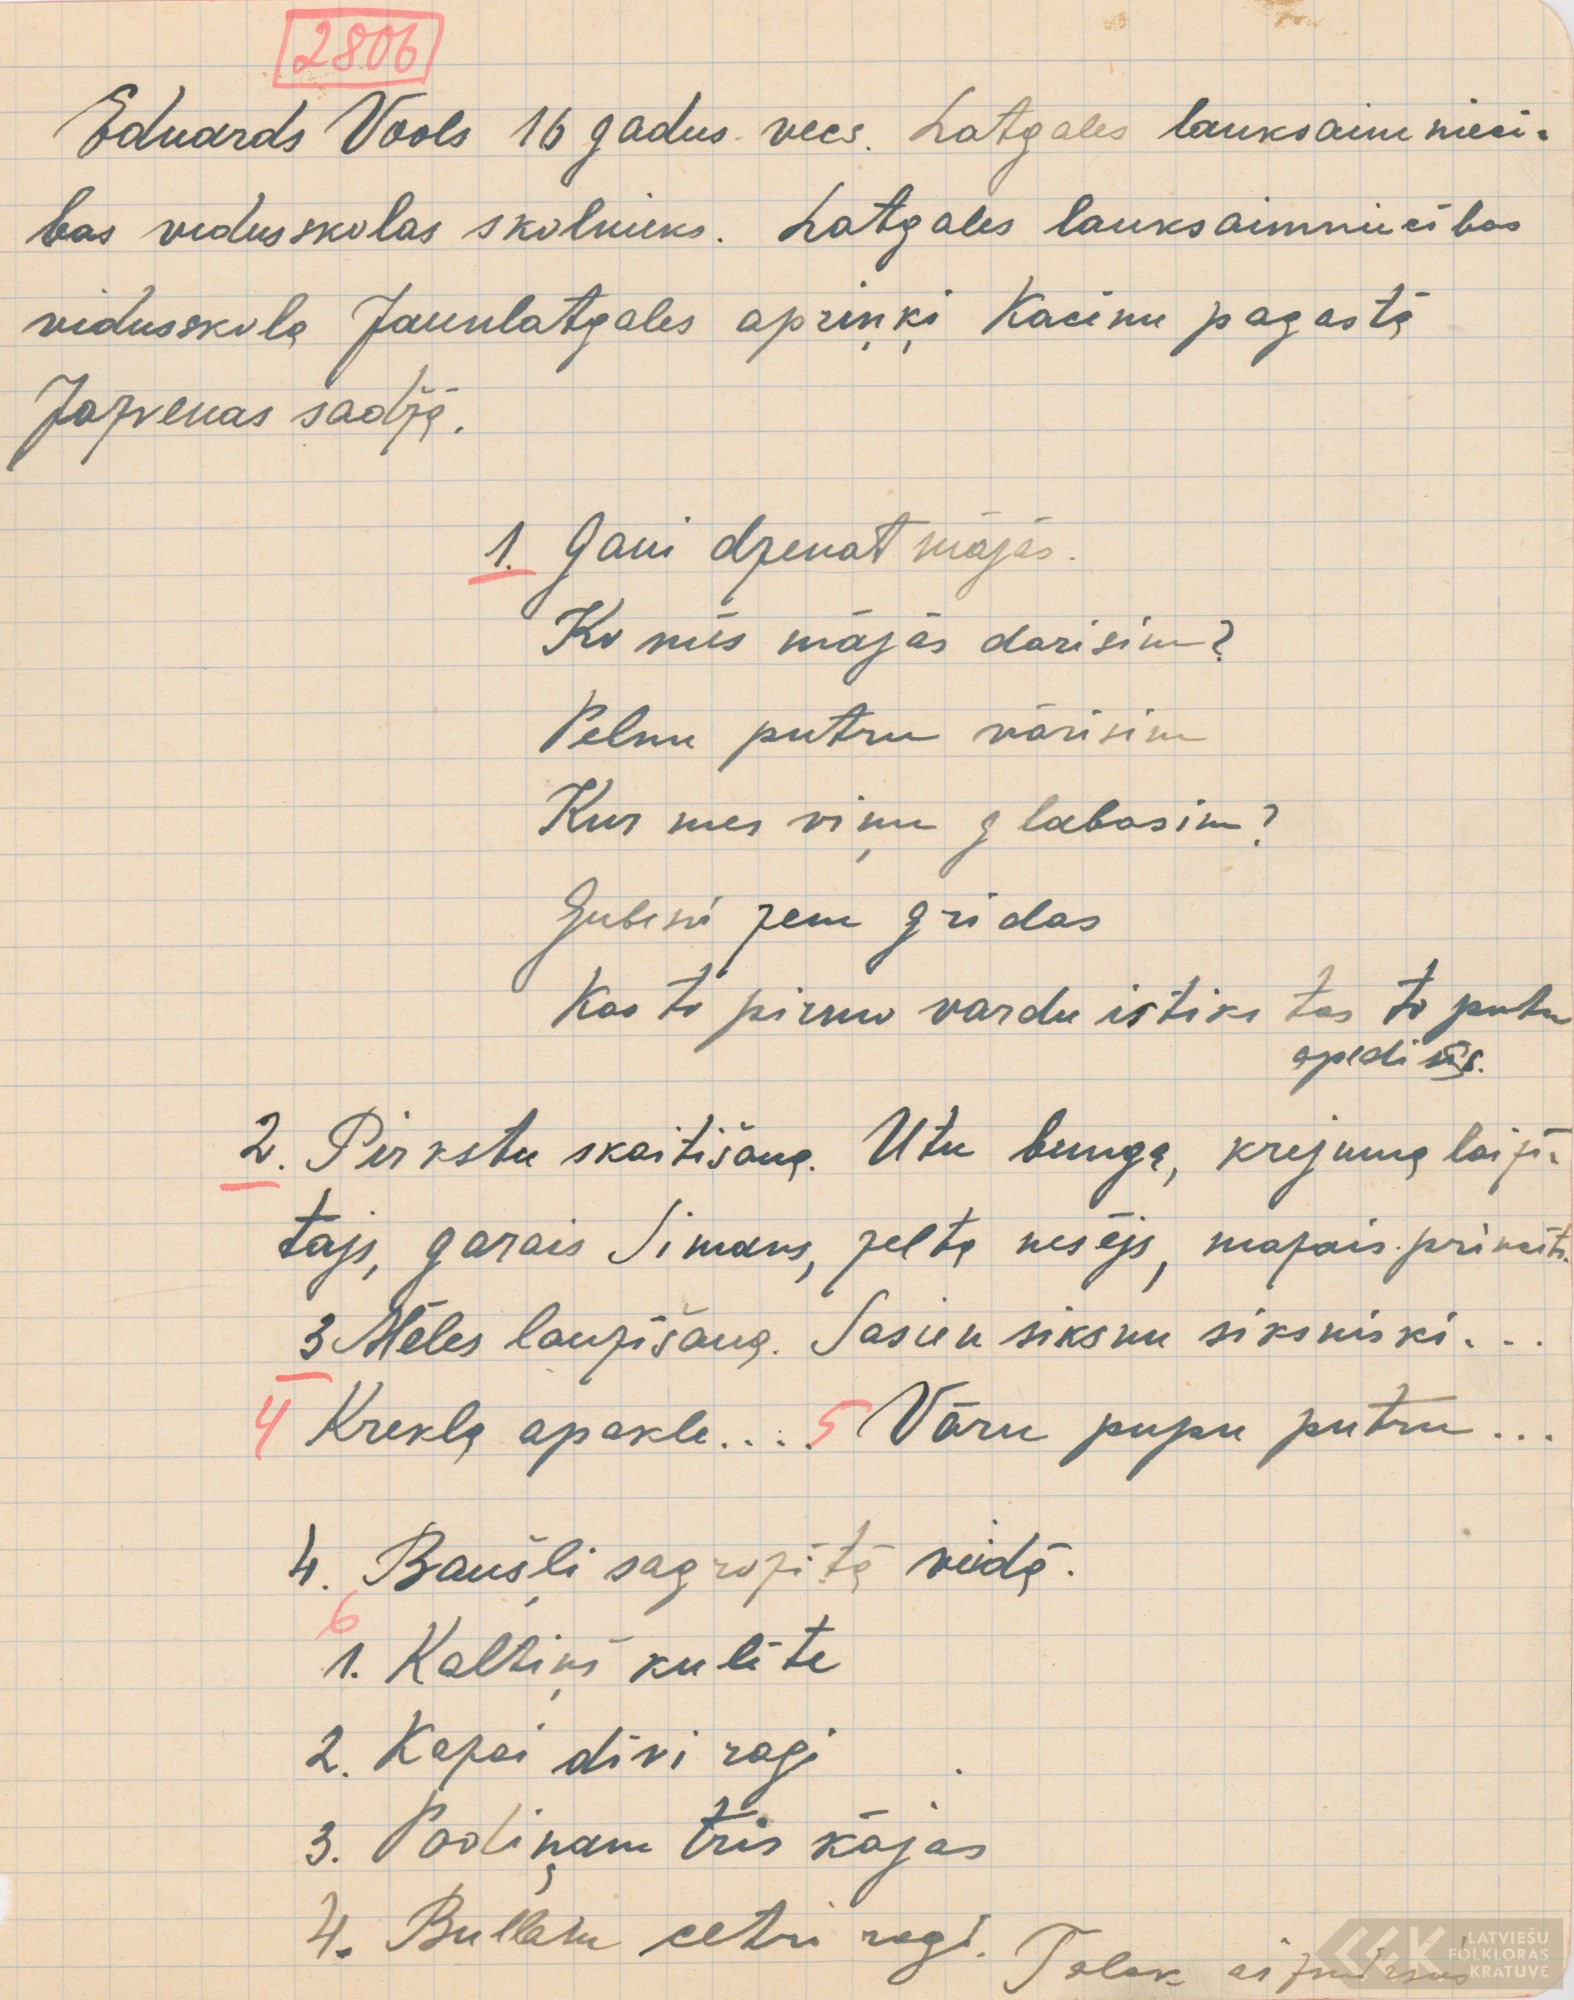 2806
Eduards Vools 16 gadus vecs. Latgales lauksaimnieci-
bas vidusskolas skolnieks. Latgales lauksaimniecības
vidusskola Jaunlatgales apriņķi Kacēnu pagastā
sādžā.
1. Gani dzenat mājās.
Ko mēs mājās darisim?
Pelnu putru vārisim
Kur mes viņu glabasim?
zem gridas
Kas to pirmo vardu istiks tas to putru
apedisīs.
2. Pirkstu skaitišana. Utu bunga, krejuma laizi-
tājs, garais Simans, zelta nesējs, mazais
3 Mēles lauzišana. Sasien siksnu siksniski...
4 Krekla apakle.... 5 Vāru pupu putru...
4. Baušļi sagrozitā veidā.
6
1. Kaltiņš kulīte
2. Kazai divi ragi
3. Podiņam trīs kājas
4. Bullam cetri ragi. Talak
LATVIEŠU
FOLKLORAS
KRĀTUVE